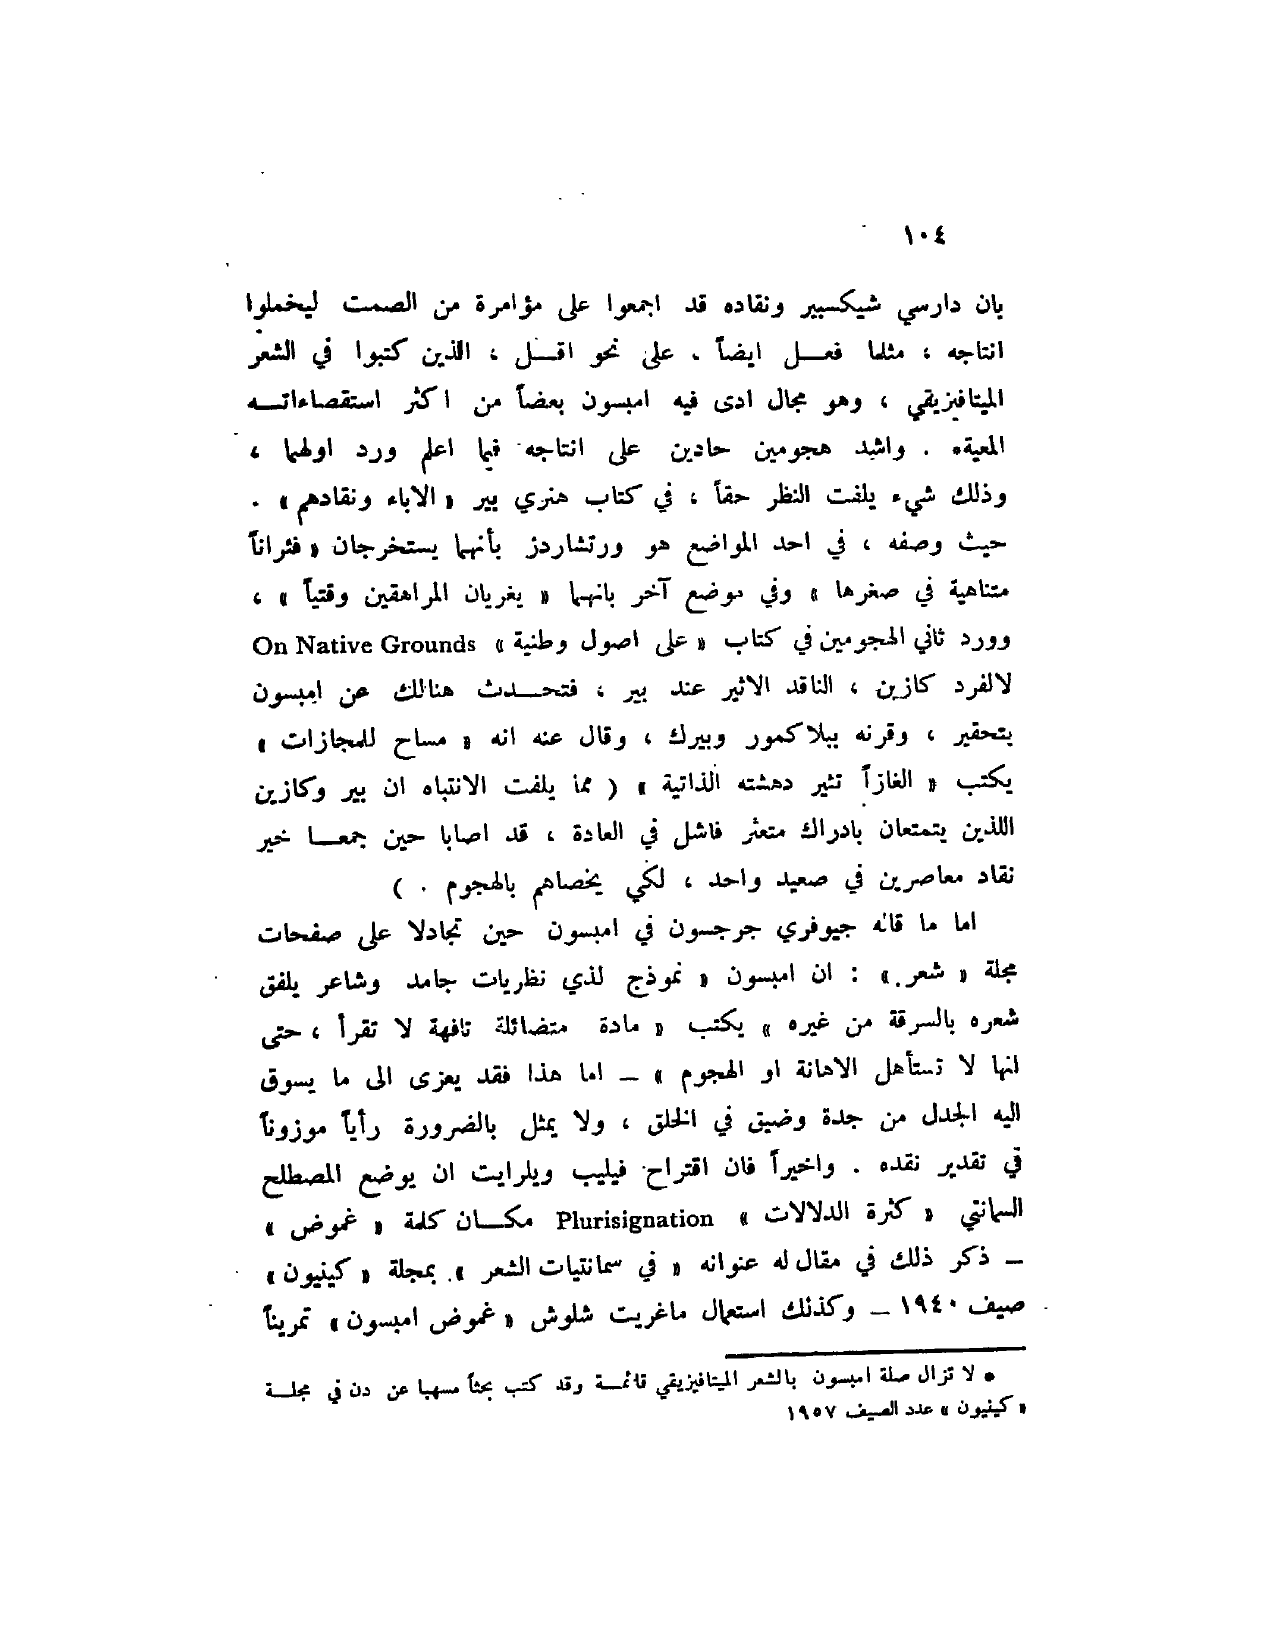 ١٠٤
بان دارسي شيكسبير ونقاده قد اجمعوا على مؤامرة من الصمت ليخملوا
انتاجه ، مثلما فعل ايضاً . على نحو اقل ، الذين كتبوا في الشعر
الميتافيزيقي ، وهو مجال ادى فيه امبسون بعضاً من اكثر استقصاءاته
المعية* . واشد هجومين حادين على انتاجه فيما اعلم ورد اولهما ،
وذلك شيء يلفت النظر حقاً ، في كتاب هنري بير « الاباء ونقادهم » .
حيث وصفه ، في احد المواضع هو ورتشاردز بأنهما يستخرجان « فئراناً
متناهية في صغرها » وفي موضع آخر بانهما « يغريان المراهقين وقتياً » ،
وورد ثاني الهجومين في كتاب « على اصول وطنية » On Native Grounds
لالفرد كازين ، الناقد الاثير عند بير ، فتحدث هنالك عن امبسون
بتحقير ، وقرنه ببلاكمور وبيرك ، وقال عنه انه « مساح للمجازات »
يكتب « الغازاً تثير دهشته الذاتية » ( مما يلفت الانتباه ان بير وكازين
اللذين يتمتعان بادراك متعثر فاشل في العادة ، قد اصابا حين جمعا خير
نقاد معاصرين في صعيد واحد ، لكي يخصاهم بالهجوم . )
اما ما قاله جيوفري جرجسون في امبسون حين تجادلا على صفحات
مجلة « شعر » : ان امبسون « نموذج لذي نظريات جامد وشاعر يلفق
شعره بالسرقة من غيره » يكتب « مادة متضائلة تافهة لا تقرأ ، حتى
انها لا تستأهل الاهانة او الهجوم » – اما هذا فقد يعزى الى ما يسوق
اليه الجدل من جدة وضيق في الخلق ، ولا يمثل بالضرورة رأياً موزوناً
في تقدير نقده . واخيراً فان اقتراح فيليب ويلرايت ان يوضع المصطلح
السمانتي « كثرة الدلالات » Plurisignation مكان كلمة « غموض »
– ذكر ذلك في مقال له عنوانه « في سمانتيات الشعر » . بمجلة « كينيون »
صيف ١٩٤٠ – وكذلك استعمال ماغريت شلوش « غموض امبسون » تمريناً
* لا تزال صلة امبسون بالشعر الميتافيزيقي قائمة وقد كتب بحثاً مسهبا عن دن في مجلة
« كينيون » عدد الصيف ١٩٥٧